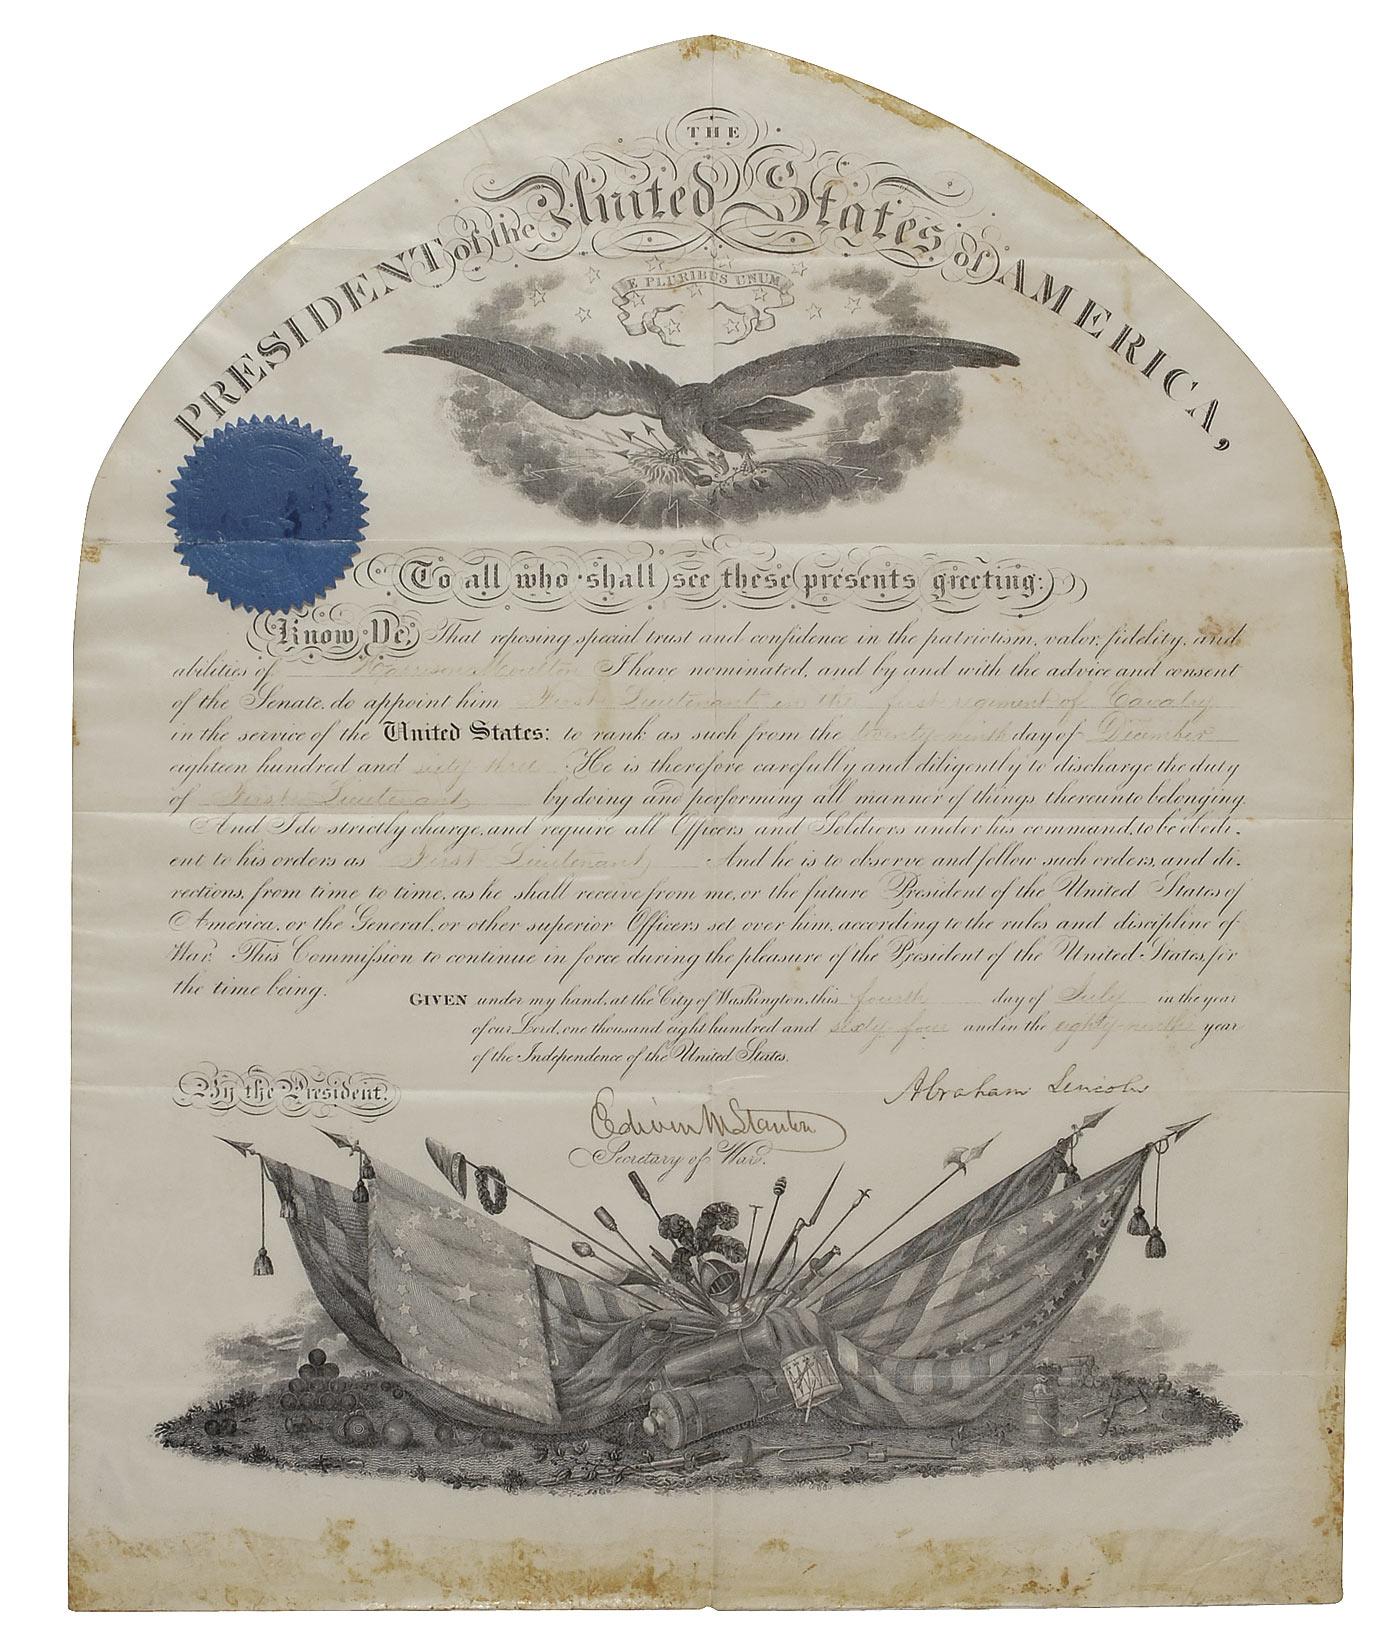 THE
PRESIDENT of the United States of AMERICA,
E PLURIBUS UNUM
To all who shall see these presents greeting:
Know Ye, That reposing special trust and confidence in the patriotism, valor, fidelity, and
abilities of Harrison Moulton I have nominated, and by and with the advice and consent
of the Senate, do appoint him First Lieutenant in the first regiment of Cavalry
in the service of the United States: to rank as such from the twenty-ninth day of December
eighteen hundred and sixty three. He is therefore carefully and diligently to discharge the duty
of First Lieutenant by doing and performing all manner of things thereunto belonging.
And I do strictly charge, and require all Officers and Soldiers under his command, to be obedi-
ent to his orders as First Lieutenant And he is to observe and follow such orders, and di-
rections, from time to time, as he shall receive from me, or the future President of the United States of
America, or the General, or other superior Officers set over him, according to the rules and discipline of
War. This Commission to continue in force during the pleasure of the President of the United States, for
the time being.
GIVEN under my hand, at the City of Washington, this fourth day of July in the year
of our Lord, one thousand eight hundred and sixty four and in the eighty-ninth year
of the Independence of the United States.
By the President.
Abraham Lincoln
Edwin M Stanton
Secretary of War.